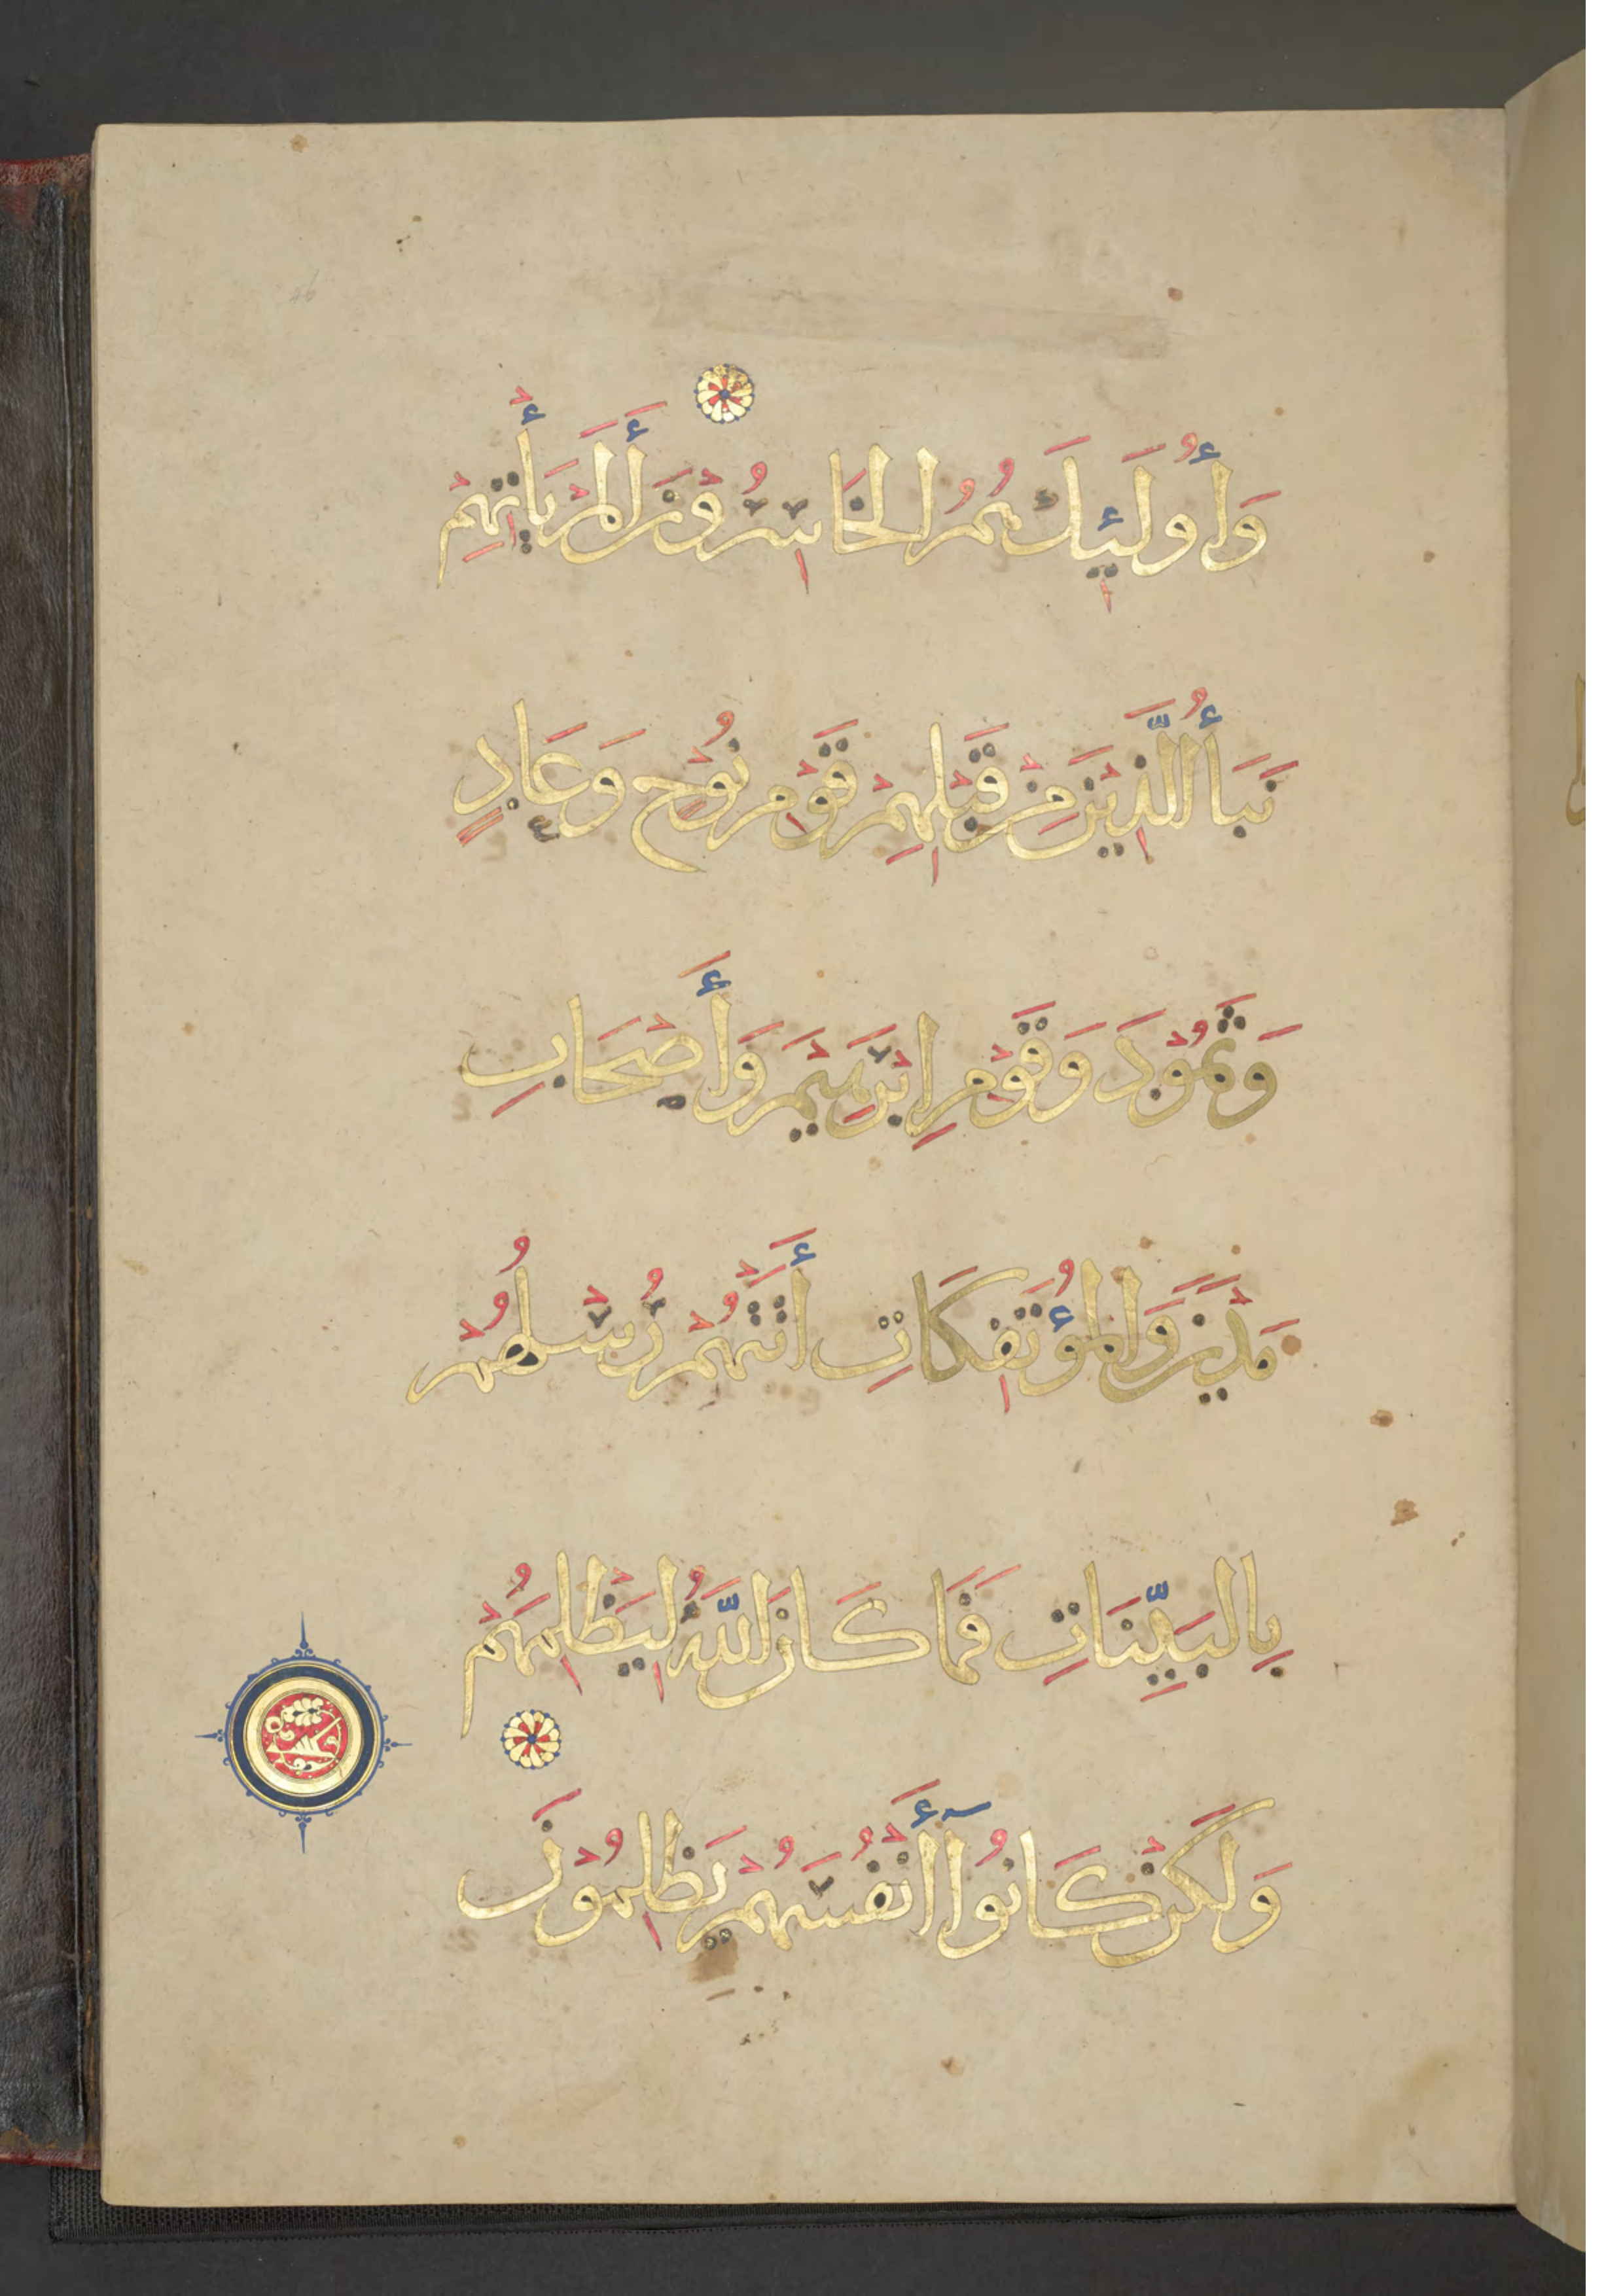 وَأُولَئِكَ هُمُ الْخَاسِرُوْنَ أَلَمْ يَأْتِهِمْ
نَبَأُ الَّذِيْنَ مِنْ قَبْلِهِمْ قَوْمِ نُوْحٍ وَعَادٍ
وَثَمُوْدَ وَقَوْمِ اِبْرَهِيْمَ وَأَصْحَابِ
مَدْيَنَ وَالْمُؤْتَفِكَاتِ أَتَتْهُمْ رُسْلُهُمْ
بِالْبَيِّنَاتِ فَمَا كَانَ اللَّهُ لِيَظْلِمَهُمْ
وَلَكِنْ كَانُوآ أَنْفُسَهُمْ يَظْلِمُوْنَ
46